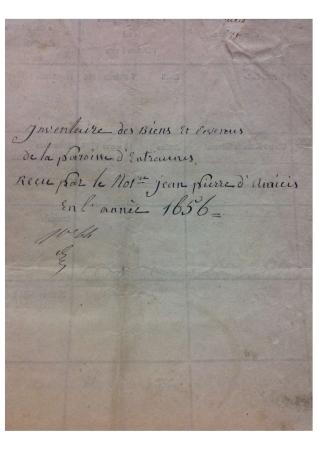 Inventaire des Biens Et Revenus
de la paroisse d'Entraunes,
Recu par le Not.re jean pierre d'Amicis
En l'année 1656=